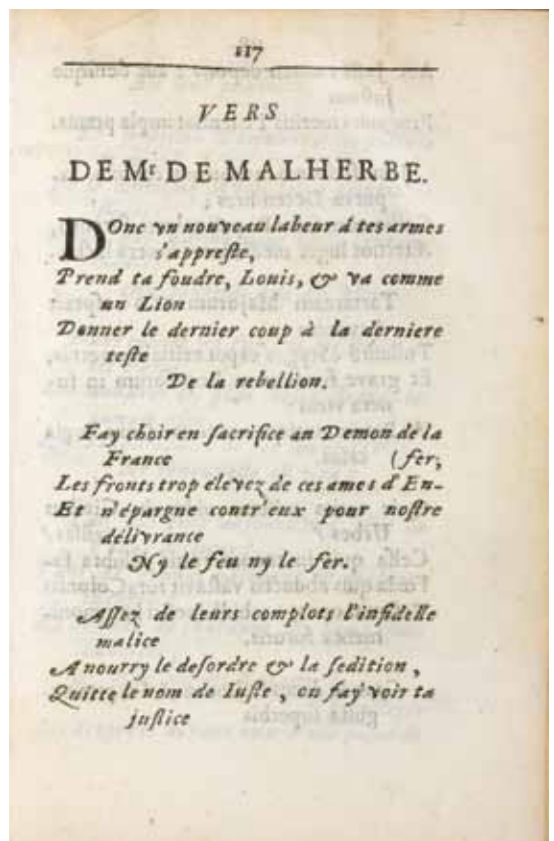 117
VERS
DE Mr DE MALHERBE.
DOnc vn nouveau labeur à tes armes
s'appreste,
Prend ta foudre, Louis, & va comme
un Lion
Donner le dernier coup à la derniere
teste
De la rebellion.
Fay choir en sacrifice au Demon de la
France (fer,
Les fronts trop élevez de ces ames d'En-
Et n'épargne contr'eux pour nostre
délivrance
Ny le feu ny le fer.
Assez de leurs complots l'infidelle
malice
A nourry le desordre & la sedition,
Quitte le nom de Iuste, ou fay voir ta
justice